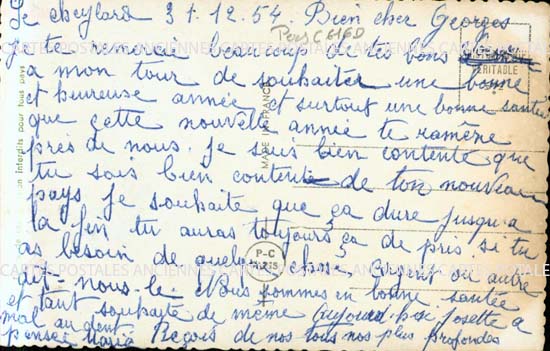 Le cheylard 31.12.54 Bien cher Georges
Pers C616D
je te remercie beaucoup de tes bons
a mon tour de souhaiter une bonne
et heureuse année et surtout une bonne santée
que cette nouvelle année te ramène
près de nous. je suis bien contente que
tu sois bien content de ton nouveau
pays je souhaite que ça dure jusqu'a
la fin tu auras toujours ça de pris. si tu
as besoin de quelque chose, argent ou autre
dit-nous-le. Nous sommes en bonne santée
et tant souhaite de même aujourd'hui josette a
mal au dent.
pensée Maria Reçois de nos tous nos plus profondes
VÉRITABLE
MADE IN FRANCE
Interdits pour tous pays
P-C
PARIS
CARTES POSTALES ANCIENNES